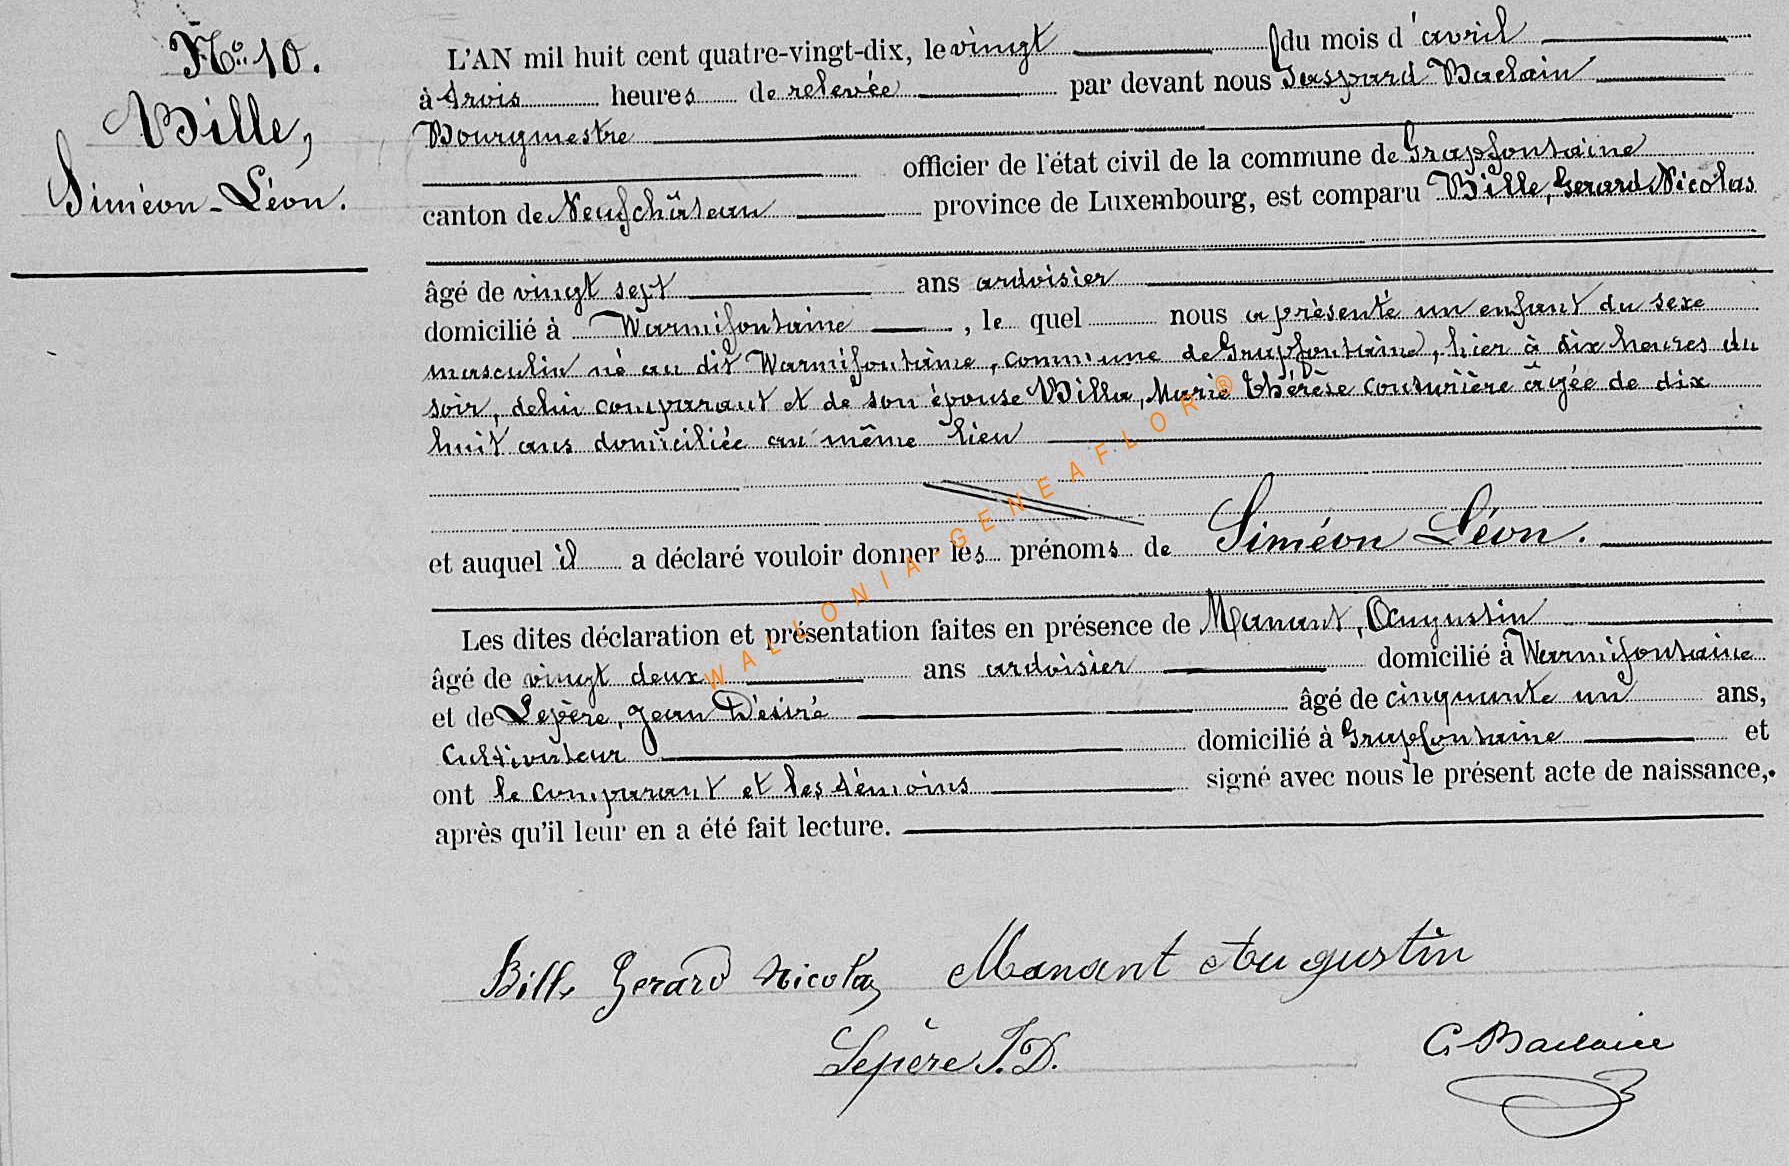 No. 10.
Bille,
Siméon-Léon.
L'AN mil huit cent quatre-vingt-dix, le vingt du mois d'avril
à trois heures de relevée par devant nous Gaspard Baclain
Bourgmestre
officier de l'état civil de la commune de Grapfontaine
canton de Neufchâteau province de Luxembourg, est comparu Bille, Gerard Nicolas
âgé de vingt sept ans ardoisier
domicilié à Warmifontaine, le quel nous a présenté un enfant du sexe
masculin né au dit Warmifontaine, commune de Grapfontaine, hier à dix heures du
soir, de lui comparant et de son épouse Billa, Marie Thérèse couturière âgée de dix
huit ans domiciliée au même lieu
et auquel il a déclaré vouloir donner les prénoms de Siméon Léon.
Les dites déclaration et présentation faites en présence de Manant, Augustin
âgé de vingt deux ans ardoisier domicilié à Warmifontaine
et de Lepère, Jean Désiré âgé de cinquante un ans,
cultivateur domicilié à Grapfontaine et
ont le comparant et les témoins signé avec nous le présent acte de naissance,
après qu'il leur en a été fait lecture.
Bille Gerard Nicolas Manant Augustin
Lepère J. D. G. Baclain
WALLONIA-GENEAFLOR®